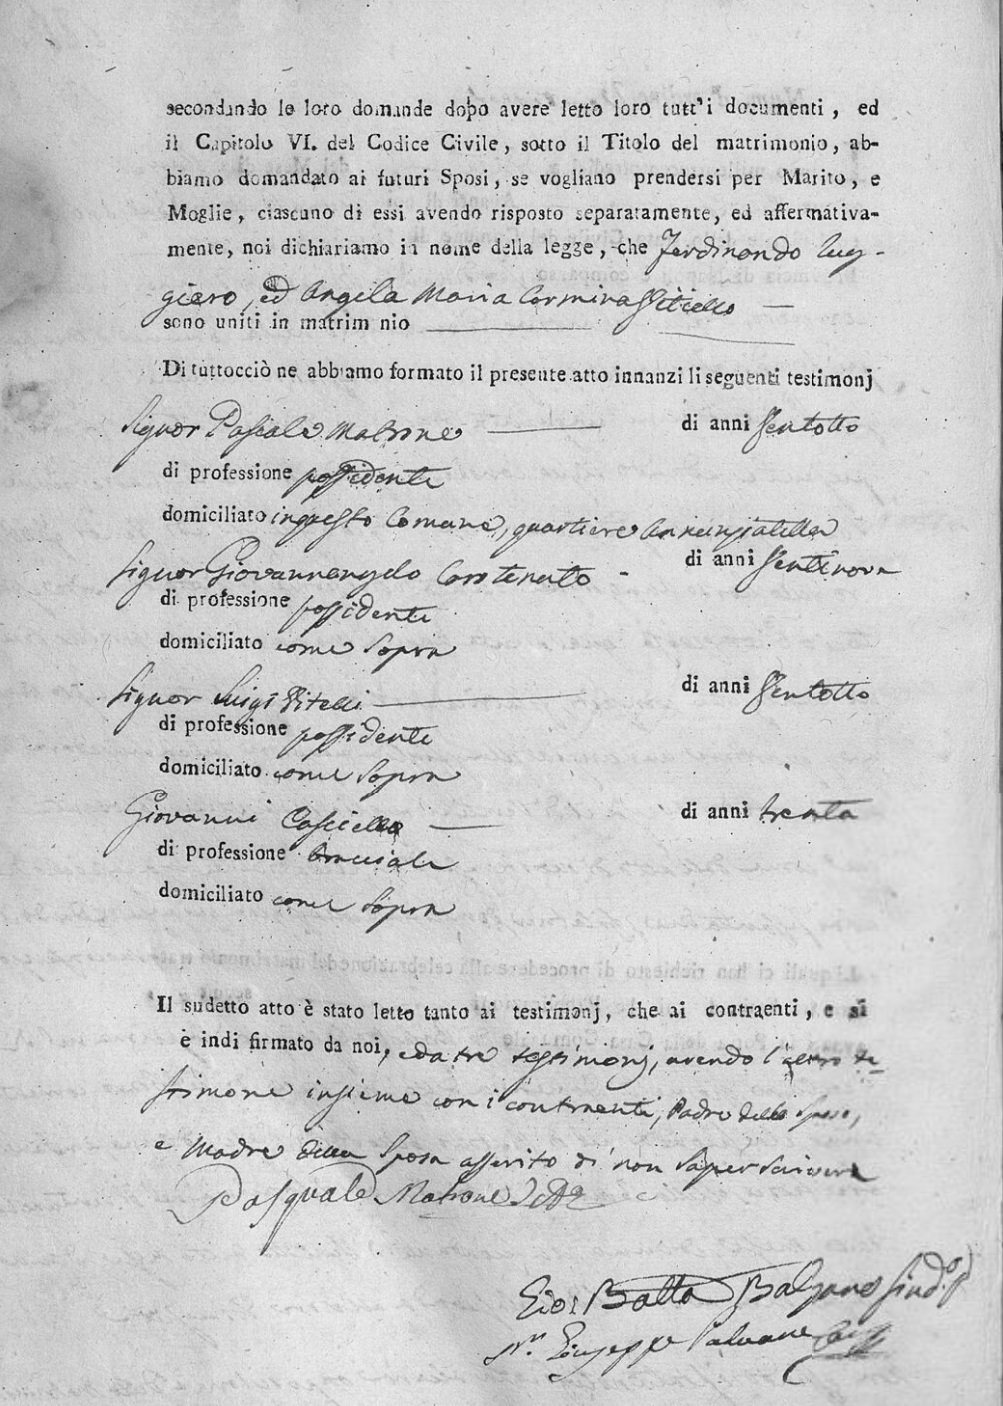 secondando le loro domande dopo avere letto loro tutt'i documenti, ed
il Capitolo VI. del Codice Civile, sotto il Titolo del matrimonio, ab-
biamo domandato ai futuri Sposi, se vogliano prendersi per Marito, e
Moglie, ciascuno di essi avendo risposto separatamente, ed affermativa-
mente, noi dichiariamo in nome della legge, che Ferdinando Rug-
giero, ed Angela Maria Carmina Vitiello
sono uniti in matrim nio
Di tuttocciò ne abbiamo formato il presente atto innanzi li seguenti testimonj
Signor Pascale Matrone di anni ventotto
di professione possidente
domiciliato in questo Comune, quartiere Annunziatella
Signor Giovannangelo Carotenuto di anni ventinova
di professione possidente
domiciliato come sopra
Signor Luigi Vitelli di anni ventotto
di professione possidente
domiciliato come sopra
Giovanni Casciello di anni trenta
di professione bracciale
domiciliato come sopra
Il sudetto atto è stato letto tanto ai testimonj, che ai contraenti, e si
è indi firmato da noi, e da tre testimonj, avendo l'altro te-
stimone insieme con i contraenti, Padre dello Sposo,
e Madre della Sposa asserito di non saper scrivere
Pasquale Matrone
Gio: Batta Balzano Sind.o
Giuseppe